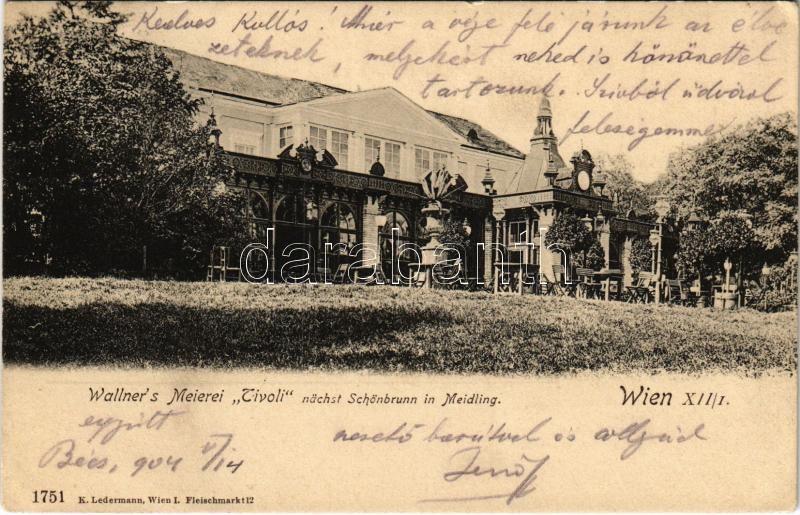 Kedves Kollós! Miér a vége felé járunk az élve
zeteknek, melyekért neked is köszönettel
tartozunk. Szívből üdvözöl
feleségemmel
darabanth
Wallner's Meierei „Tivoli" nächst Schönbrunn in Meidling. Wien XII/1.
együtt
Bécs, 904 V/14
barátod
Jenő
1751 K. Ledermann, Wien I. Fleischmarkt 12